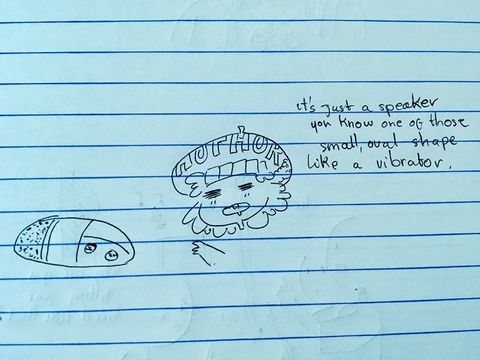 HUTHUK
it's just a speaker
you know one of those
small, oval shape
like a vibrator.